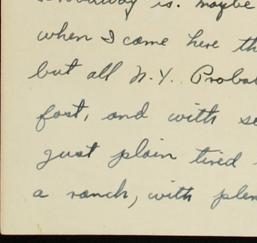 is. maybe
when I came here th
but all N.Y. Proba
fast, and with se
just plain tired
a ranch, with plen